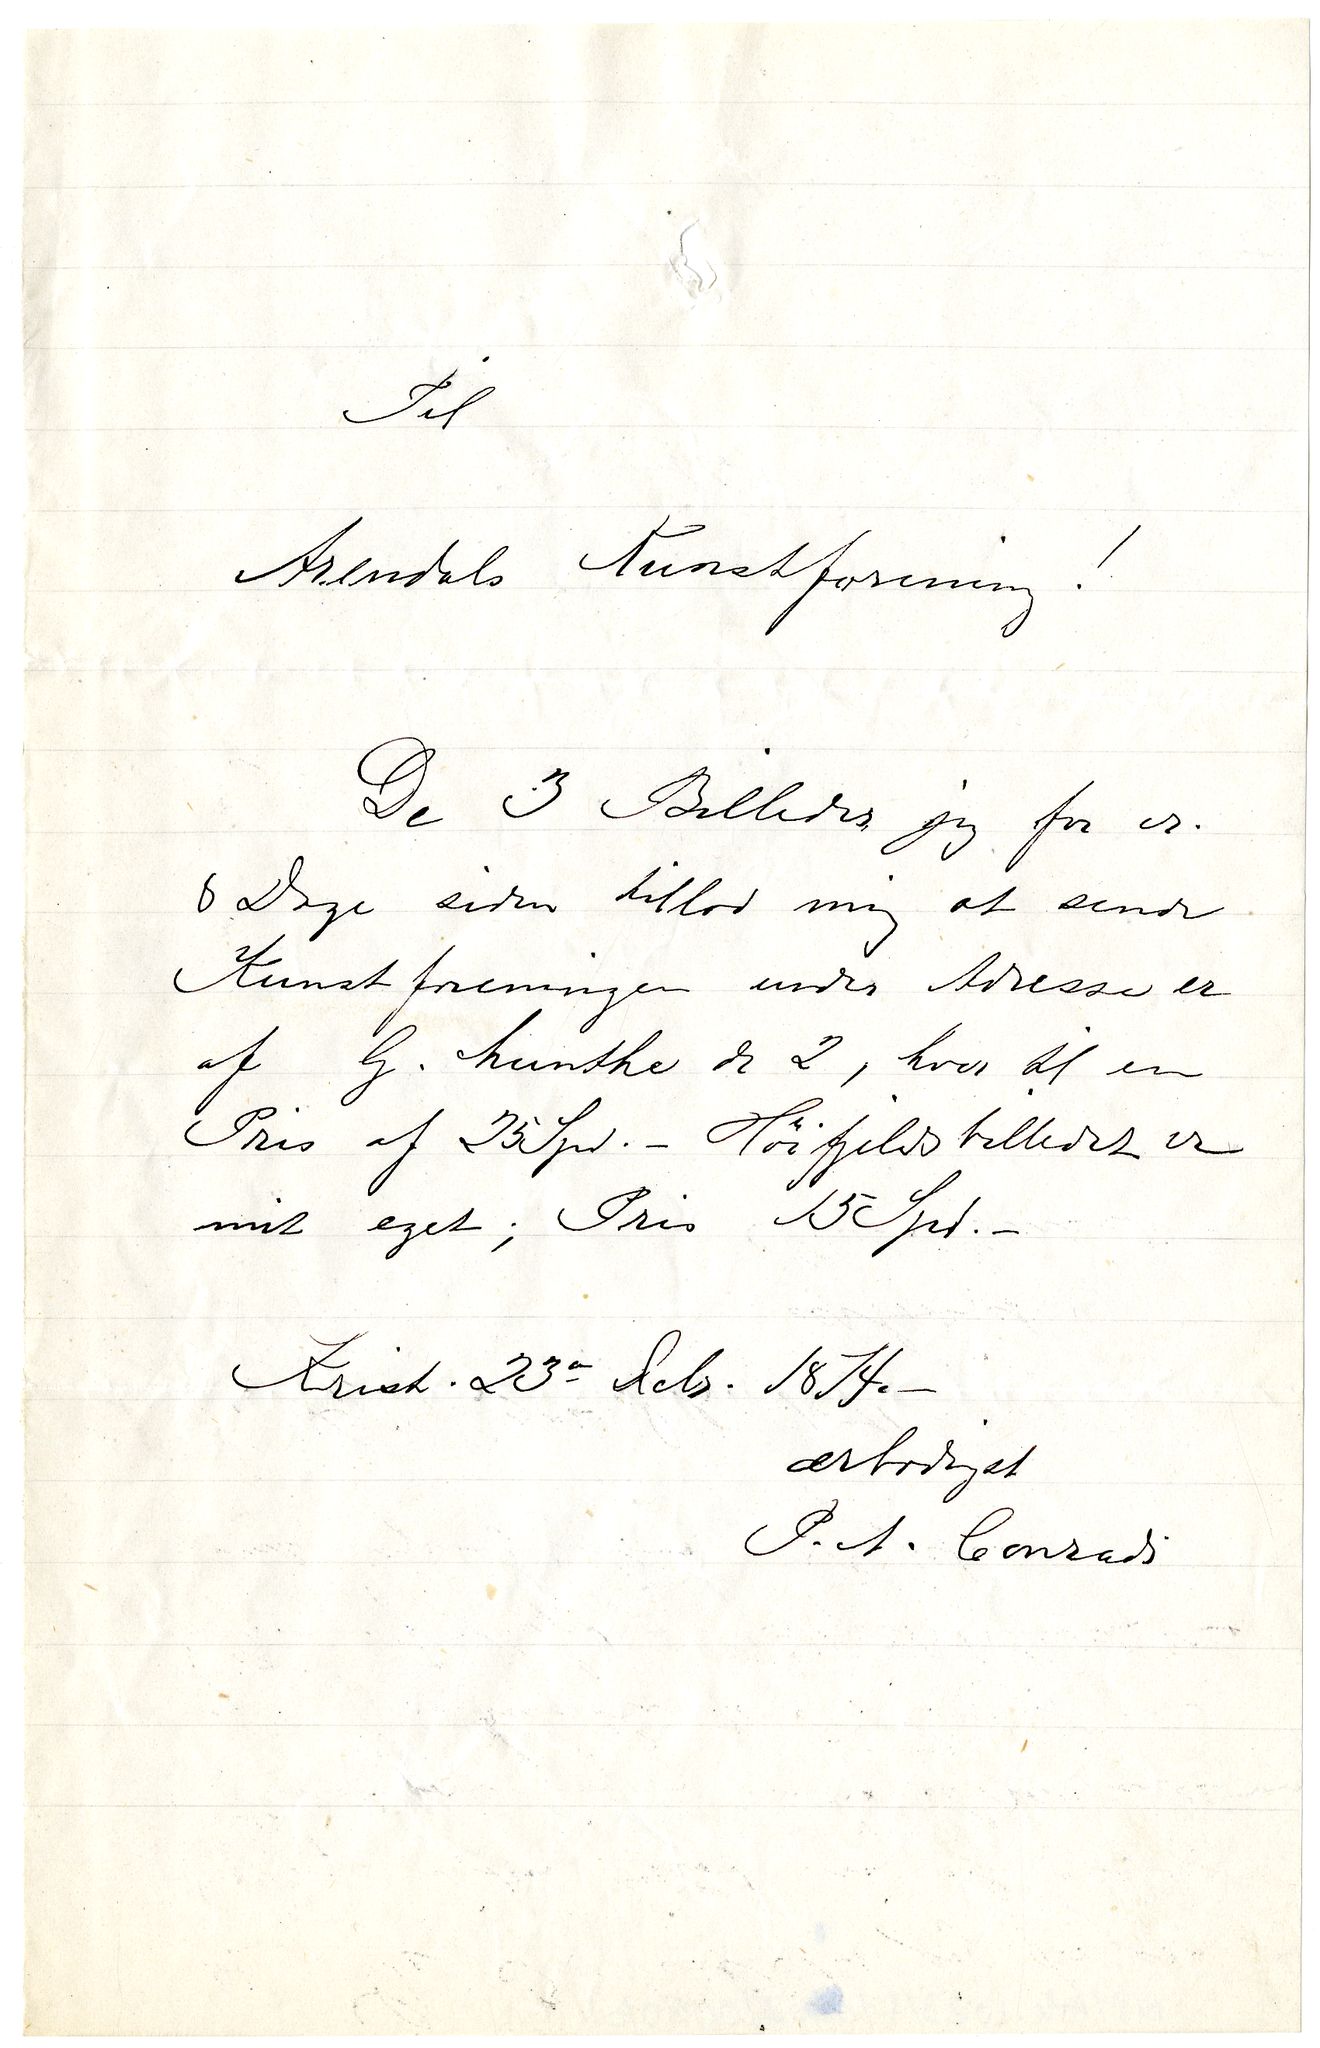 Til
Arendals Kunstforening!
De 3 Billeder, jeg for cr.
8 Dage siden tillod mig at sende
Kunstforeningen under Adresse er
af G. Munthe de 2, hver til en
Pris af 25 Spd. – Höifjeldsbilledet er
mit eget; Pris 15 Spd. –
Krist. 23 1874. –
ærbødigst
P. A. Conradi